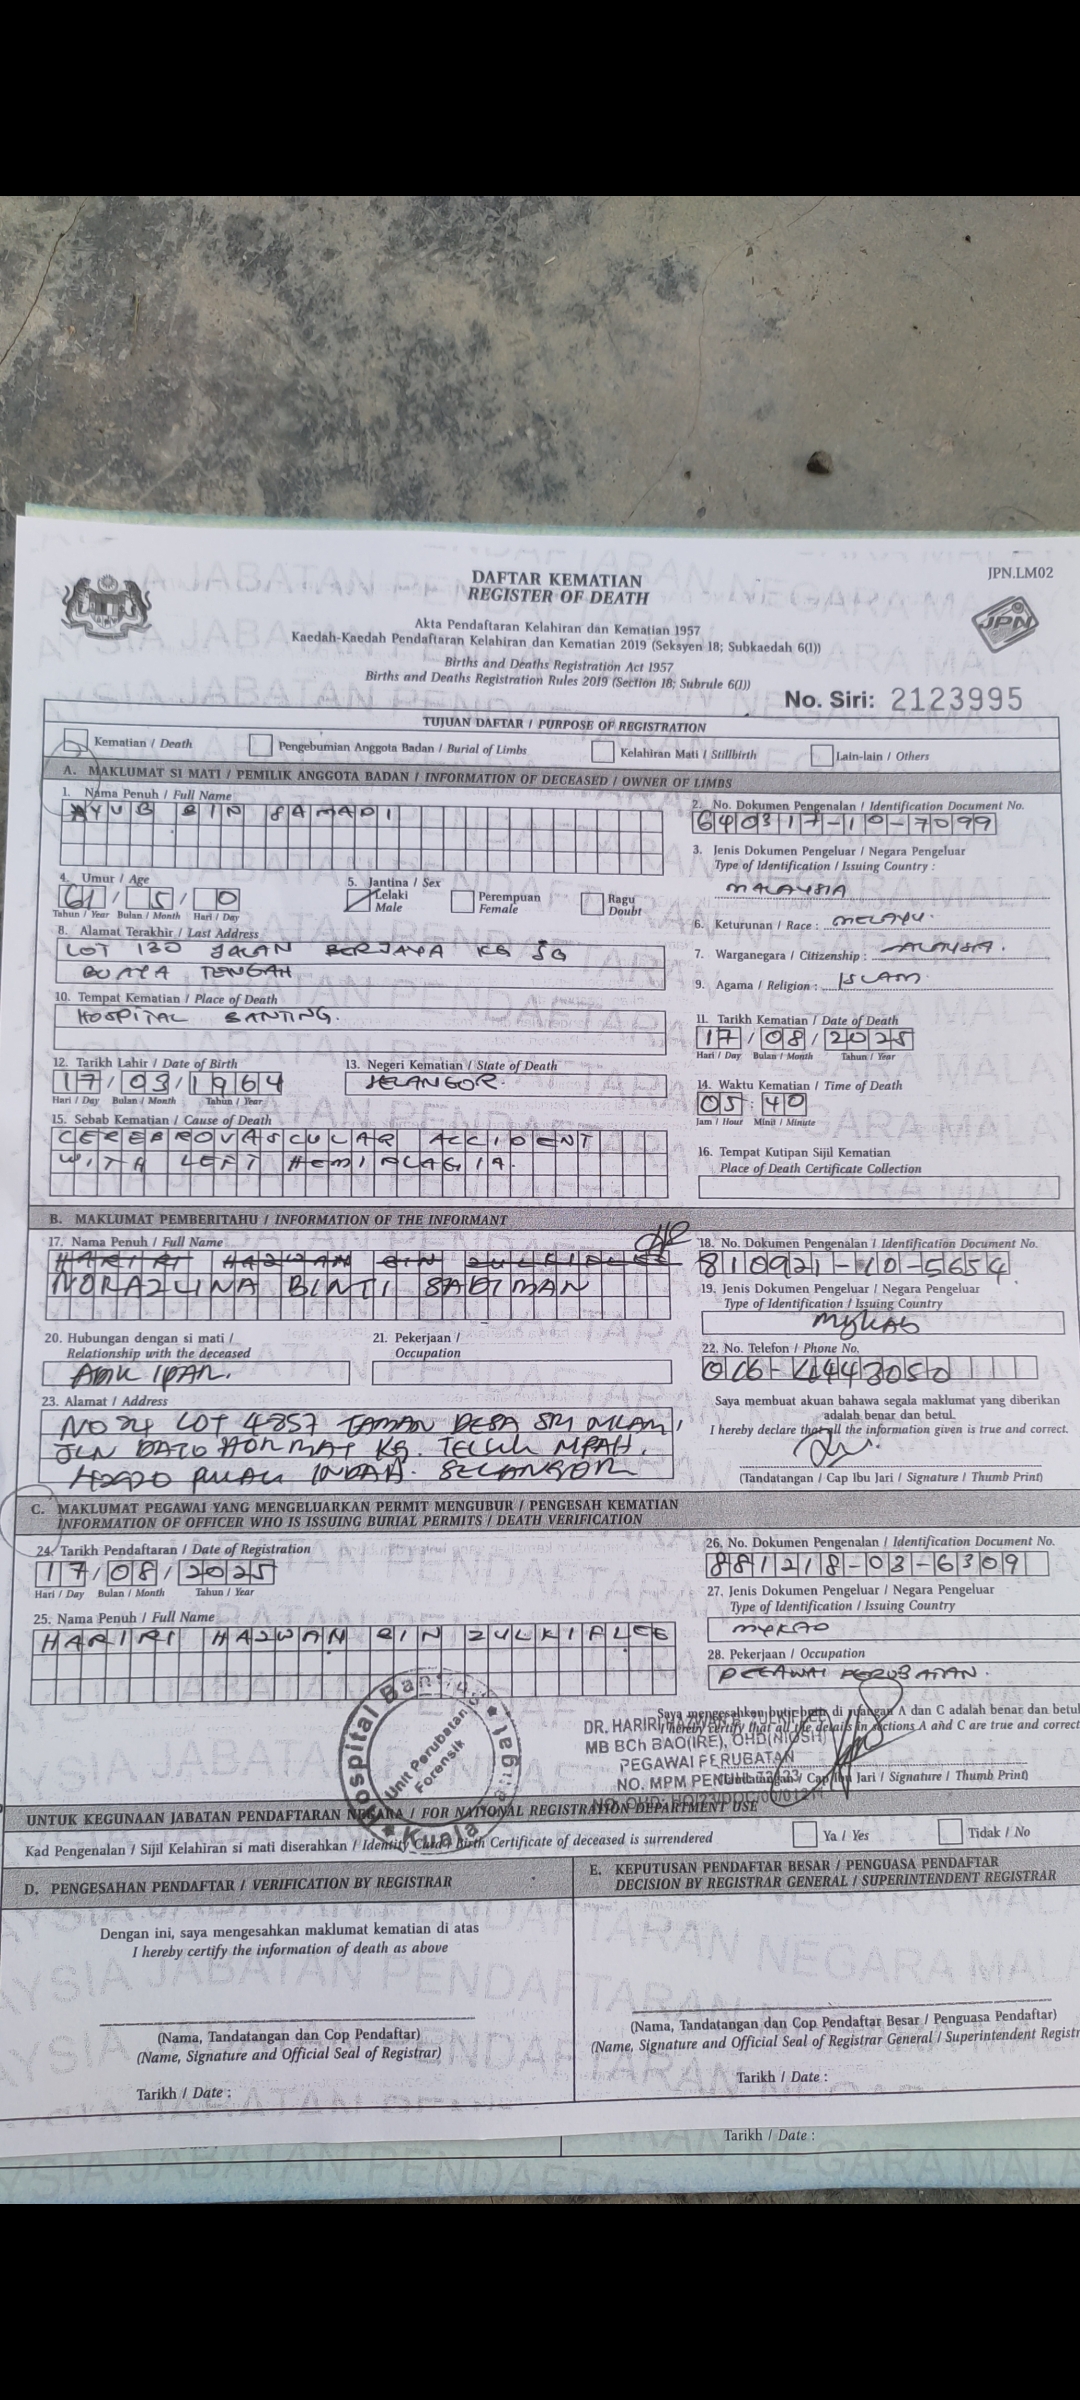 JPN.LM02
DAFTAR KEMATIAN
REGISTER OF DEATH
JPN
Akta Pendaftaran Kelahiran dan Kematian 1957
Kaedah-Kaedah Pendaftaran Kelahiran dan Kematian 2019 (Seksyen 18; Subkaedah 6(1))
Births and Deaths Registration Act 1957
Births and Deaths Registration Rules 2019 (Section 18; Subrule 6(1))
No. Siri: 2123995
TUJUAN DAFTAR / PURPOSE OF REGISTRATION
Kematian / Death Pengebumian Anggota Badan / Burial of Limbs Kelahiran Mati / Stillbirth Lain-lain / Others
A. MAKLUMAT SI MATI / PEMILIK ANGGOTA BADAN / INFORMATION OF DECEASED / OWNER OF LIMBS
1. Nama Penuh / Full Name
AYUB BIN SAMADI
2. No. Dokumen Pengenalan / Identification Document No.
640317-10-7099
3. Jenis Dokumen Pengeluar / Negara Pengeluar
Type of Identification / Issuing Country :
MALAYSIA
4. Umur / Age
61 / 5 / 0
Tahun / Year Bulan / Month Hari / Day
5. Jantina / Sex
Lelaki Male Perempuan Female Ragu Doubt
6. Keturunan / Race : MELAYU.
7. Warganegara / Citizenship : MALAYSIA.
8. Alamat Terakhir / Last Address
LOT 130 JALAN BERJAYA KG SG
BUAYA TENGAH
9. Agama / Religion : ISLAM.
10. Tempat Kematian / Place of Death
HOSPITAL BANTING.
11. Tarikh Kematian / Date of Death
17 / 08 / 2025
Hari / Day Bulan / Month Tahun / Year
12. Tarikh Lahir / Date of Birth
17 / 03 / 1964
Hari / Day Bulan / Month Tahun / Year
13. Negeri Kematian / State of Death
SELANGOR.
14. Waktu Kematian / Time of Death
05 : 40
Jam / Hour Minit / Minute
15. Sebab Kematian / Cause of Death
CEREBROVASCULAR ACCIDENT
WITH LEFT HEMIPLAGIA.
16. Tempat Kutipan Sijil Kematian
Place of Death Certificate Collection
B. MAKLUMAT PEMBERITAHU / INFORMATION OF THE INFORMANT
17. Nama Penuh / Full Name
HARIRI HAZWAN BIN ZULKIFLEE
NORAZLINA BINTI SADIMAN
18. No. Dokumen Pengenalan / Identification Document No.
810921-10-5654
19. Jenis Dokumen Pengeluar / Negara Pengeluar
Type of Identification / Issuing Country
20. Hubungan dengan si mati /
Relationship with the deceased
ADIK IPAR.
21. Pekerjaan /
Occupation
22. No. Telefon / Phone No.
23. Alamat / Address
LOT 4857 TAMAN DESA SRI
KG. TELUK
PULAU INDAH. SELANGOR
Saya membuat akuan bahawa segala maklumat yang diberikan
adalah benar dan betul.
I hereby declare that all the information given is true and correct.
(Tandatangan / Cap Ibu Jari / Signature / Thumb Print)
C. MAKLUMAT PEGAWAI YANG MENGELUARKAN PERMIT MENGUBUR / PENGESAH KEMATIAN
INFORMATION OF OFFICER WHO IS ISSUING BURIAL PERMITS / DEATH VERIFICATION
24. Tarikh Pendaftaran / Date of Registration
17 / 08 / 2025
Hari / Day Bulan / Month Tahun / Year
25. Nama Penuh / Full Name
HARIRI HAZWAN BIN ZULKIFLEE
26. No. Dokumen Pengenalan / Identification Document No.
881218-03-6309
27. Jenis Dokumen Pengeluar / Negara Pengeluar
Type of Identification / Issuing Country
MYKAD
28. Pekerjaan / Occupation
PEGAWAI PERUBATAN.
Saya mengesahkan butir-butir di ruangan A dan C adalah benar dan betul
I hereby certify that all the details in sections A and C are true and correct
DR. HARIRI HAZWAN B. ZULKIFLEE
MB BCh BAO(IRE), OHD(NIOSH)
PEGAWAI PERUBATAN
NO. MPM PENUH:
(Tandatangan / Cap Ibu Jari / Signature / Thumb Print)
Hospital Banting
Unit Perubatan
Forensik
Kuala
UNTUK KEGUNAAN JABATAN PENDAFTARAN NEGARA / FOR NATIONAL REGISTRATION DEPARTMENT USE
Kad Pengenalan / Sijil Kelahiran si mati diserahkan / Identity Card / Birth Certificate of deceased is surrendered Ya / Yes Tidak / No
D. PENGESAHAN PENDAFTAR / VERIFICATION BY REGISTRAR
Dengan ini, saya mengesahkan maklumat kematian di atas
I hereby certify the information of death as above
(Nama, Tandatangan dan Cop Pendaftar)
(Name, Signature and Official Seal of Registrar)
Tarikh / Date :
E. KEPUTUSAN PENDAFTAR BESAR / PENGUASA PENDAFTAR
DECISION BY REGISTRAR GENERAL / SUPERINTENDENT REGISTRAR
(Nama, Tandatangan dan Cop Pendaftar Besar / Penguasa Pendaftar)
(Name, Signature and Official Seal of Registrar General / Superintendent Registr
Tarikh / Date :
Tarikh / Date :